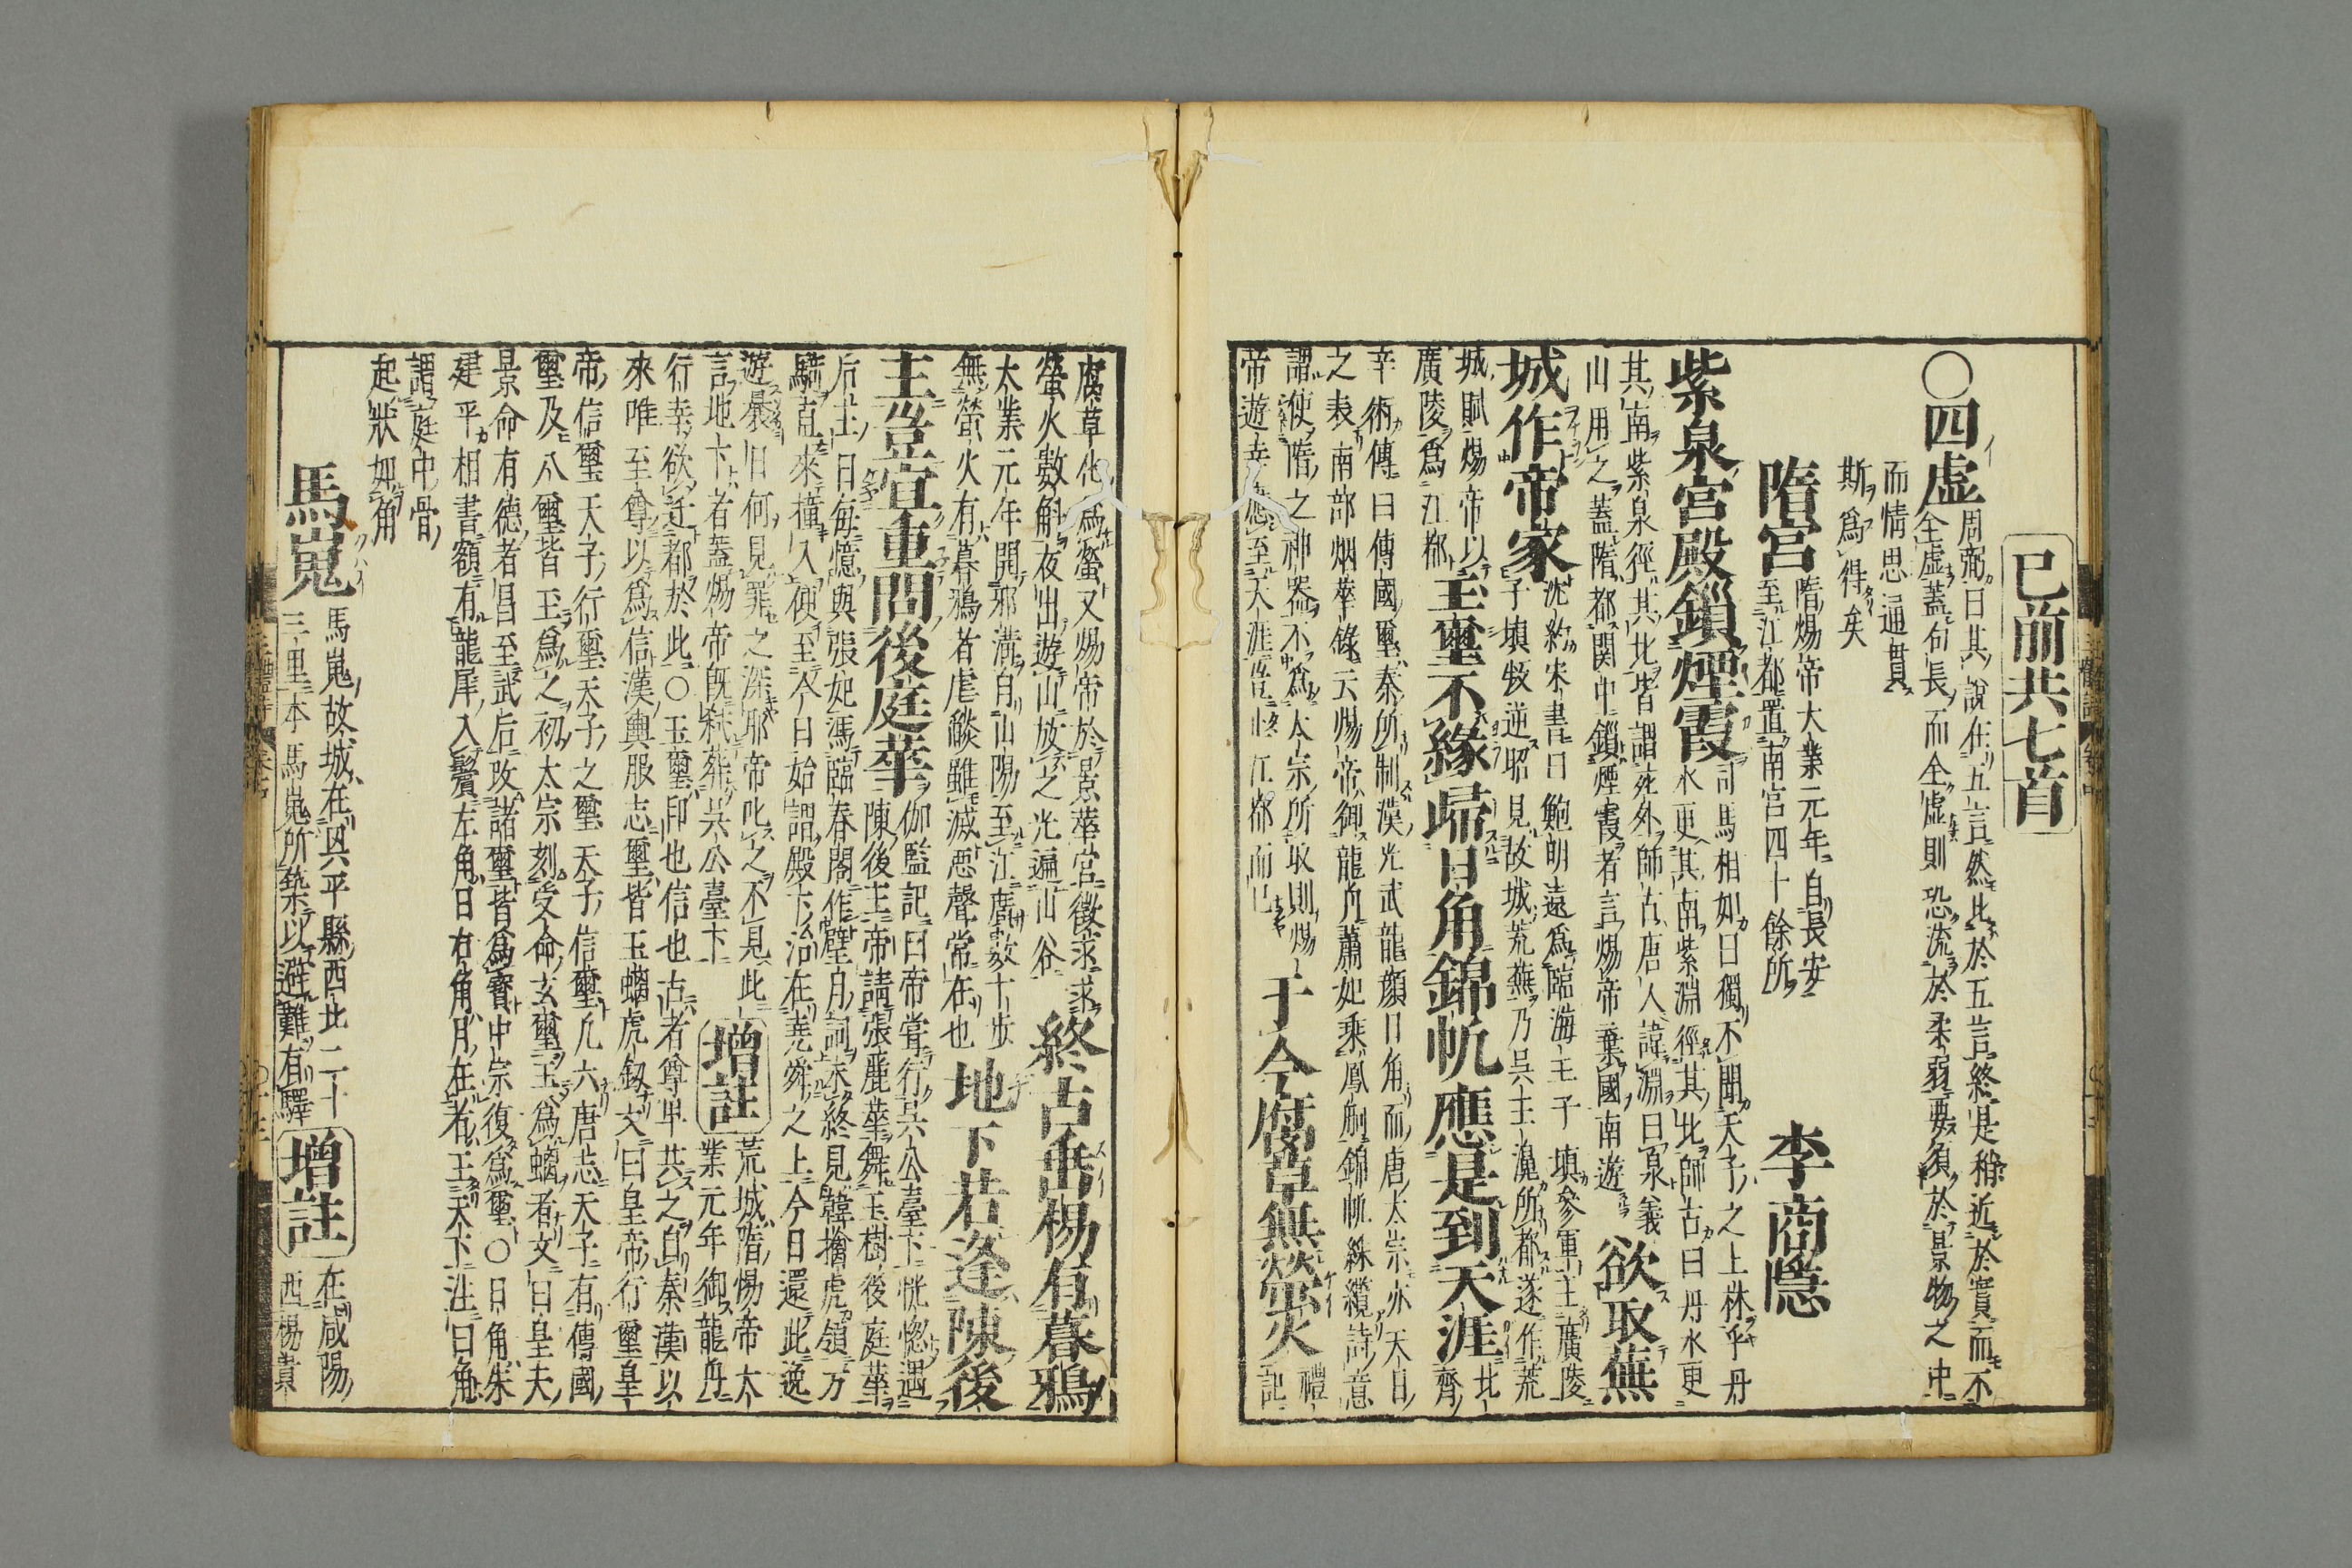 已前共七首
○四虛
周弼曰其說在五言然比於五言終是稍近於實而不
全虛蓋句長而全虛則恐流於柔弱要須於景物之中
而情思通貫
斯爲得矣
隋宮
隋煬帝大業元年自長安
至江都置南宮四十餘所
李商隱
紫泉宮殿鎖煙霞
司馬相如曰獨不聞天子之上林乎丹
水更其南紫淵徑其北師古曰丹水更
其南紫泉徑其北皆謂苑外師古唐人諱淵曰泉義
山用之蓋隋都關中鎖煙霞者言煬帝棄國南遊
欲取蕪
城作帝家
沈約宋書曰鮑明遠爲臨海王子填參軍王廣陵
子填叛逆昭見故城荒蕪乃吳王濞所都遂作荒
城賦煬帝以
廣陵爲江都
玉璽不緣歸日角錦帆應是到天涯
北
齊
辛術傳曰傳國璽秦所制漢光武龍顏日角而唐太宗亦天日
之表南部烟華錄云煬帝御龍舟蕭妃乘鳳舸錦帆綵纜詩意
謂使隋之神器不爲太宗所取則煬
帝遊幸應至天涯豈啻江都而已
于今腐草無螢火
禮
記
腐草化爲螢又煬帝於景華宮徵求
螢火數斛夜出遊山放之光遍山谷
終古垂楊有暮鴉
大業元年開邪溝自山陽至江廣數十步
無螢火有暮鴉者虐燄雖滅惡聲常在也
地下若逢陳後
主豈宜重問後庭華
伽監記曰帝嘗行吳公臺下恍惚遇
陳後主帝請張麗華舞玉樹後庭華
后主曰每憶與張妃馮臨春閣作壁月詞未終見韓擒虎領万
騎直來撞入便至今日始謂殿下治在堯舜之上今日還此逸
遊曩日何見罪之深耶帝叱之不見此
言地下者蓋煬帝旣弒葬吳公臺下
增註
荒城隋煬帝大
業元年御龍舟
行幸欲迁都於此○玉璽印也信也古者尊卑共之自秦漢以
來唯至尊以爲信漢輿服志璽皆玉螭虎鈕文曰皇帝行璽皇
帝信璽天子行璽天子之璽天子信璽凡六唐志天子有傳國
璽及八璽皆玉爲之初太宗刻受命玄璽玉爲螭者文曰皇天
景命有德者昌至武后改諸璽皆爲寶中宗復爲璽○日角朱
建平相書額有龍犀入鬢左角日右角月在者王天下注曰角
謂庭中骨
起狀如角
馬嵬
馬嵬故城在興平縣西北二十
三里本馬嵬所築以避難有驛
增註
在咸陽
西楊貴